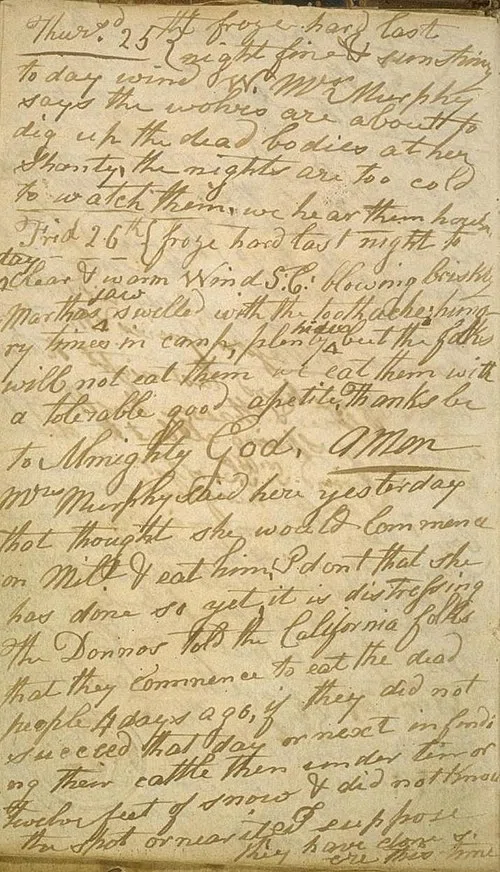 Thurs.d 25th froze hard last
night fine & sunshiny
to day wind W. Mrs Murphy
says the wolves are about to
dig up the dead bodies at her
Shanty, the nights are too cold
to watch them, we hear them howl
Frid 26th froze hard last night to
day
clear & warm Wind S.E: blowing briskly
Marthas jaw swelled with the toothache; hung
ry times in camp, plenty hides but the folks
will not eat them we eat them with
a tolerable good apetite, Thanks be
to Almighty God. Amen
Mrs Murphy said here yesterday
that thought she would commence
on Milt & eat him, I dont that she
has done so yet, it is distressing
The Donnos told the California folks
that they commence to eat the dead
people 4 days ago, if they did not
succeed that day or next in findi
ng their cattle then under ten or
twelve feet of snow & did not know
the spot or near it, I suppose
they have done so
ere this time